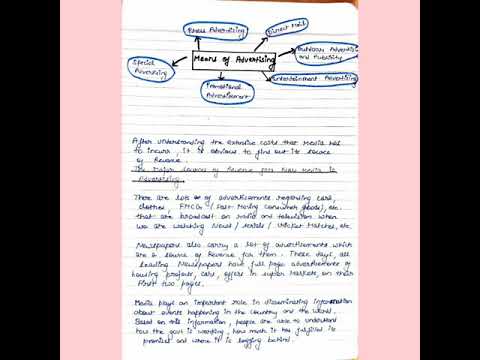 Press Advertising
Direct Mail
Outdoor Advertising
and Publicity
Means of Advertising
Special
Advertising
Entertainment Advertising
Promotional
Advertisement
After understanding the extensive costs that media has
to incur, it is obvious to find out its source
of Revenue.
The Major source of Revenue for Mass Media is
Advertising
There are lots of advertisements regarding cars,
clothes, FMCGs (Fast-Moving consumer goods), etc.
that are broadcast on radio and television when
we are watching News / serials / Cricket Matches, etc.
Newspapers also carry a lot of advertisements which
are a source of Revenue for them. These days, all
leading Newspapers have full page advertisements of
housing projects, cars, offers in super markets, on their
first two pages.
Media plays an important role in disseminating information
about events happening in the country and the world.
Based on this information, people are able to understand
how the govt is working, how much it has fulfilled its
promises and where it is lagging behind.